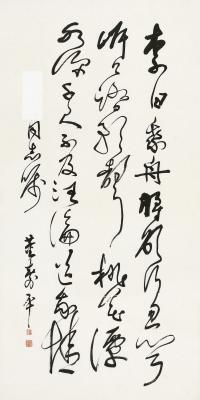 李白乘舟将欲行忽闻
岸上踏歌声桃花潭
水深千尺不及汪伦送我情
同志嘱
董寿平